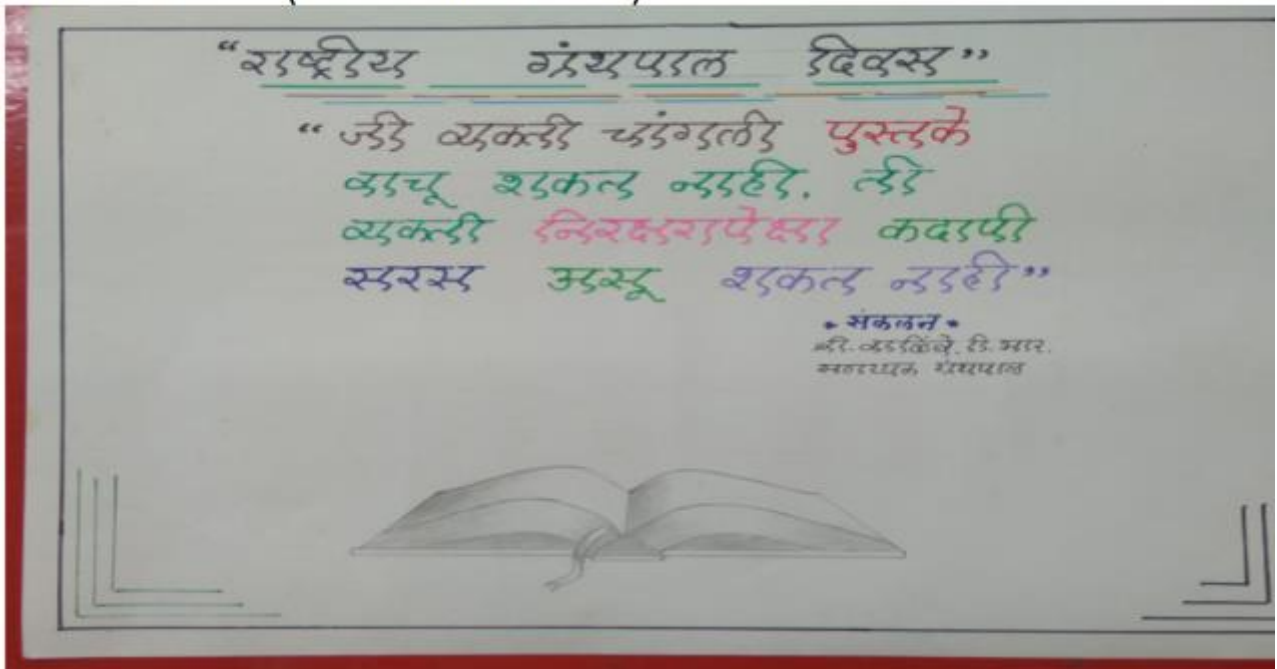 “राष्ट्रीय ग्रंथपाल दिवस”
“जी व्यक्ती चांगली पुस्तके
वाचू शकत नाही. ती
व्यक्ती निरक्षरापेक्षा कदापी
सरस असू शकत नाही”
• संकलन •
सहाय्यक ग्रंथपाल